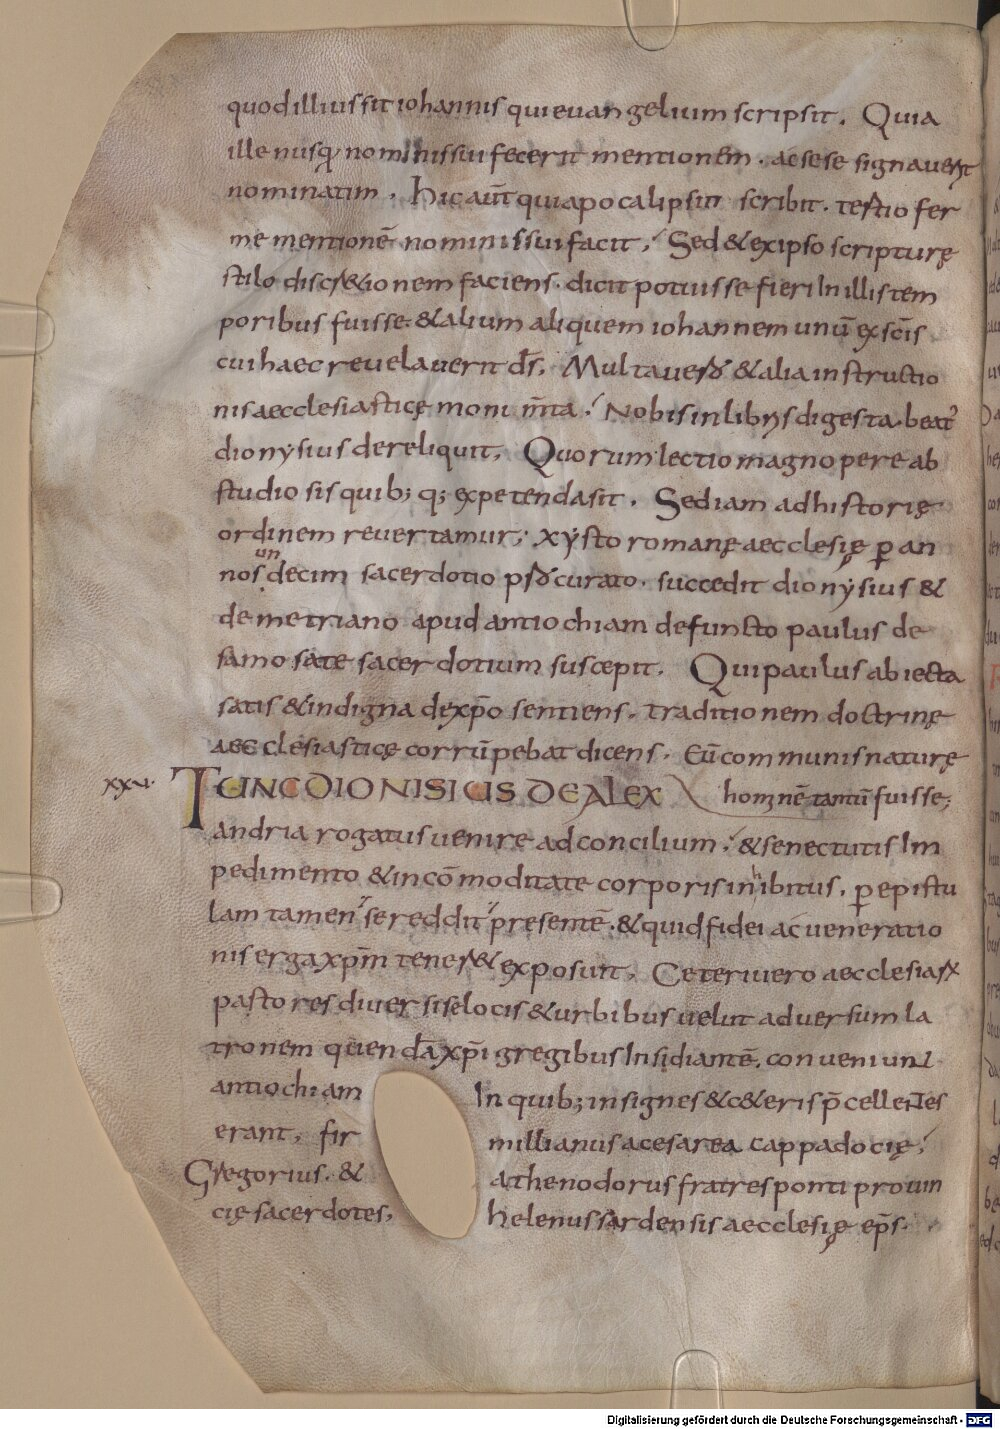 quod illius sit iohannis qui evangelium scripsit. Quia
ille nusq nominis sui fecerit mentionem. ac sese signaverit
nominatim. Hic aut̄ qui apocalipsin scribit. tertio fer
me mentionē nominis sui facit; Sed & ex ipso scripturę
stilo discr&ionem faciens. dicit potuisse fieri In illis tem
poribus fuisse & alium aliquem iohannem unū ex sc̄is
cui haec revelaverit d̄s. Multa vero & alia instructio
nis aecclesiasticę monim̄ta; Nobis in libris digesta beat'
dionysius dereliquit. Quorum lectio magnopere ab
studiosis quib; q; expetenda sit. Sed iam ad historię
ordinem revertamur; Xysto romanę aecclesię p̱ an
nos undecim sacerdotio procurato. succedit dionysius &
demetriano apud antiochiam defuncto paulus de
samosate sacerdotium suscepit. Qui paulus abiecta
satis & indigna de xp̄o sentiens. traditionem doctrinę
aecclesiasticę corrūpebat dicens. Eū communis naturę
hominē tantū fuisse;
xxv. TUNC DIONISIUS DE ALEX
andria rogatus venire ad concilium; & senectutis Im
pedimento & incōmoditate corporis inhibitus. p̱ epistu
lam tamen se reddit presentē. & quid fidei ac veneratio
nis erga xp̄m teneret exposuit. Ceteri vero aecclesiarum
pastores diversis e locis & urbibus velut adversum la
tronem quendā xp̄i gregibus Insidiantē. conveniunt
antiochiam In quib; insignes & c&eris p̄cellentes
erant. firmillianus a cesarea cappadocię;
Gregorius. & athenodorus fratres ponti provin
cię sacerdotes. helenus sardensis aecclesię ep̄s.
Digitalisierung gefördert durch die Deutsche Forschungsgemeinschaft - DFG